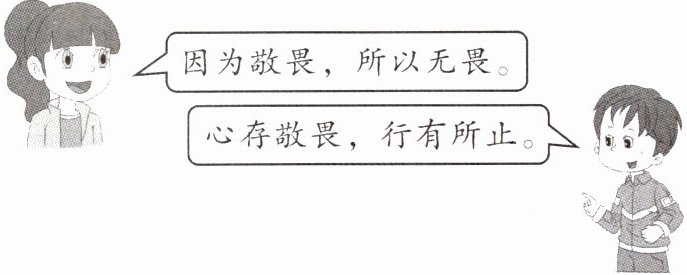 因为敬畏，所以无畏。
心存敬畏，行有所止。